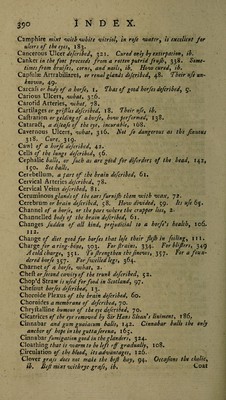 390 INDEX.
Camphire mixt with white vitriol, in rose water, is excellent for
ulcers of the eyes, 183.
Cancerous Ulcer described, 321. Cured only by extirpation, ib.
Canker in the foot proceeds from a rotten putrid frush, 338. Some-
times from bruises, corns, and nails, ib. How cured, ib.
Capsulæ Atrabiliares, or renal glands described, 48. Their use un-
known, 49.
Carcass or body of a horse, 1. That of good horses described, 5.
Carious Ulcers, what, 326.
Carotid Arteries, what, 78.
Cartilages or gristles described, 18. Their use, ib.
Castration or gelding of a horse, how performed, 158.
Cataract, a disease of the eye, incurable, 168.
Cavernous Ulcers, what, 316. Not so dangerous as the sinuous
318. Cure, 319.
Cawl of a horse described, 41.
Cells of the lungs described, 56.
Cephalic balls, or such as are good for disorders of the head, 142,
150. See balls.
Cerebellum, a part of the brain described, 61.
Cervical Arteries described, 78.
Cervical Veins described, 81.
Ceruminous glands of the ears furnish them with wax, 72.
Cerebrum or brain described, 58. How divided, 59. Its use 65.
Channel of a horse, or the part where the crupper lies, 2.
Channelled body of the brain described, 61.
Changes sudden of all kind, prejudicial to a horse's health, 106.
112.
Change of diet good for horses that lose their flesh in soiling, 111.
Charge for a ring-bone, 303. For strains, 334. For blisters, 349
A cold charge, 331. To strengthen the sinews, 357. For a foun-
dered horse 357. For swelled legs, 364.
Charnet of a horse, what, 2.
Chest or second cavity of the trunk described, 52.
Chop'd Straw is used for food in Scotland, 97.
Chesnut horses described, 13.
Choroide Plexus of the brain described, 60.
Choroides a membrane of described, 70.
Chrystalline humour of the eye described, 70.
Cicatrices of the eye removed by Sir Hans Sloan's liniment, 186.
Cinnabar and gum guaiacum balls, 142. Cinnabar balls the only
anchor of hope in the gutta serena, 165.
Cinnabar fumigation good in the glanders, 324.
Cloathing that is warm to be left off gradually, 108.
Circulation of the blood, its advantages, 126.
Clover grass does not make the best hay, 94. Occasions the cholic,
ib. Best mixt withrye grass, ib. Coat